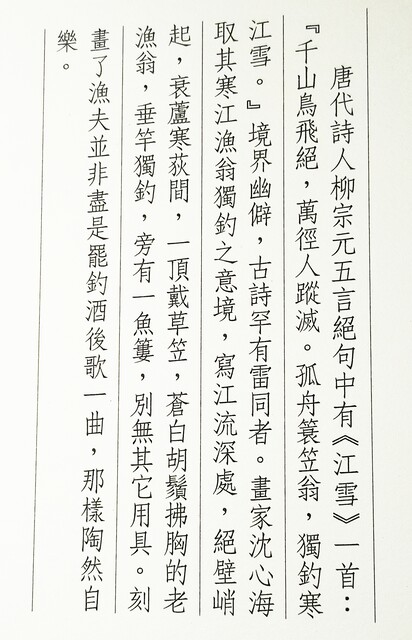 唐代詩人柳宗元五言絕句中有《江雪》一首：
『千山鳥飛絕，萬徑人蹤滅。孤舟簑笠翁，獨釣寒
江雪。』境界幽僻，古詩罕有雷同者。畫家沈心海
取其寒江漁翁獨釣之意境，寫江流深處，絕壁峭
起，衰蘆寒荻間，一頂戴草笠，蒼白胡鬚拂胸的老
漁翁，垂竿獨釣，旁有一魚簍，別無其它用具。刻
畫了漁夫並非盡是罷釣酒後歌一曲，那樣陶然自
樂。